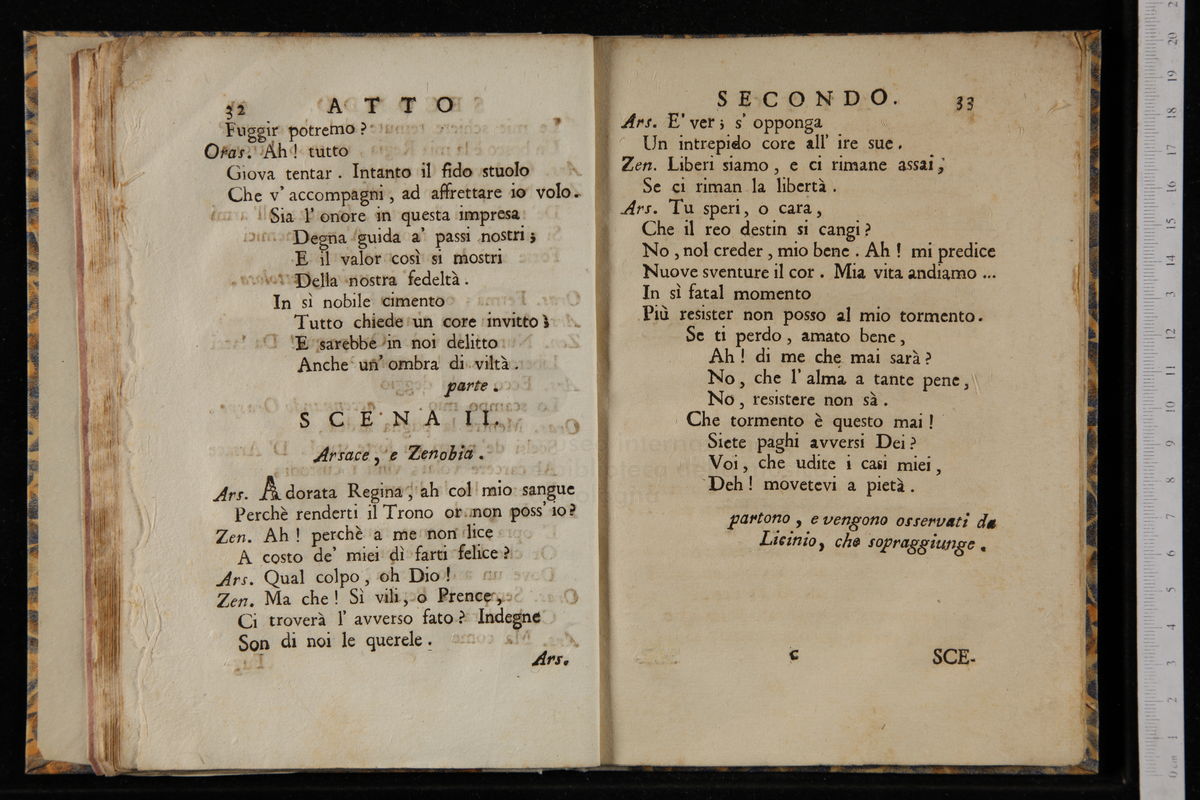 32 ATTO
Fuggir potremo ?
Oras. Ah ! tutto
Giova tentar . Intanto il fido stuolo
Che v' accompagni , ad affrettare io volo.
Sia l' onore in questa impresa
Degna guida a' passi nostri ;
E il valor così si mostri
Della nostra fedeltà .
In sì nobile cimento
Tutto chiede un core invitto ;
E sarebbe in noi delitto
Anche un' ombra di viltà .
parte .
SCENA II.
Arsace , e Zenobia .
Ars. Adorata Regina , ah col mio sangue
Perchè renderti il Trono or non poss' io ?
Zen. Ah ! perchè a me non lice
A costo de' miei dì farti felice ?
Ars. Qual colpo , oh Dio !
Zen. Ma che ! Sì vili , o Prence ,
Ci troverà l' avverso fato ? Indegne
Son di noi le querele .
Ars.
SECONDO. 33
Ars. E' ver ; s' opponga
Un intrepido core all' ire sue .
Zen. Liberi siamo , e ci rimane assai ,
Se ci riman la libertà .
Ars. Tu speri , o cara ,
Che il reo destin si cangi ?
No , nol creder , mio bene . Ah ! mi predice
Nuove sventure il cor . Mia vita andiamo ...
In sì fatal momento
Più resister non posso al mio tormento .
Se ti perdo , amato bene ,
Ah ! di me che mai sarà ?
No , che l' alma a tante pene ,
No , resistere non sà .
Che tormento è questo mai !
Siete paghi avversi Dei ?
Voi , che udite i casi miei ,
Deh ! movetevi a pietà .
partono , e vengono osservati da
Licinio , che sopraggiunge .
C SCE-